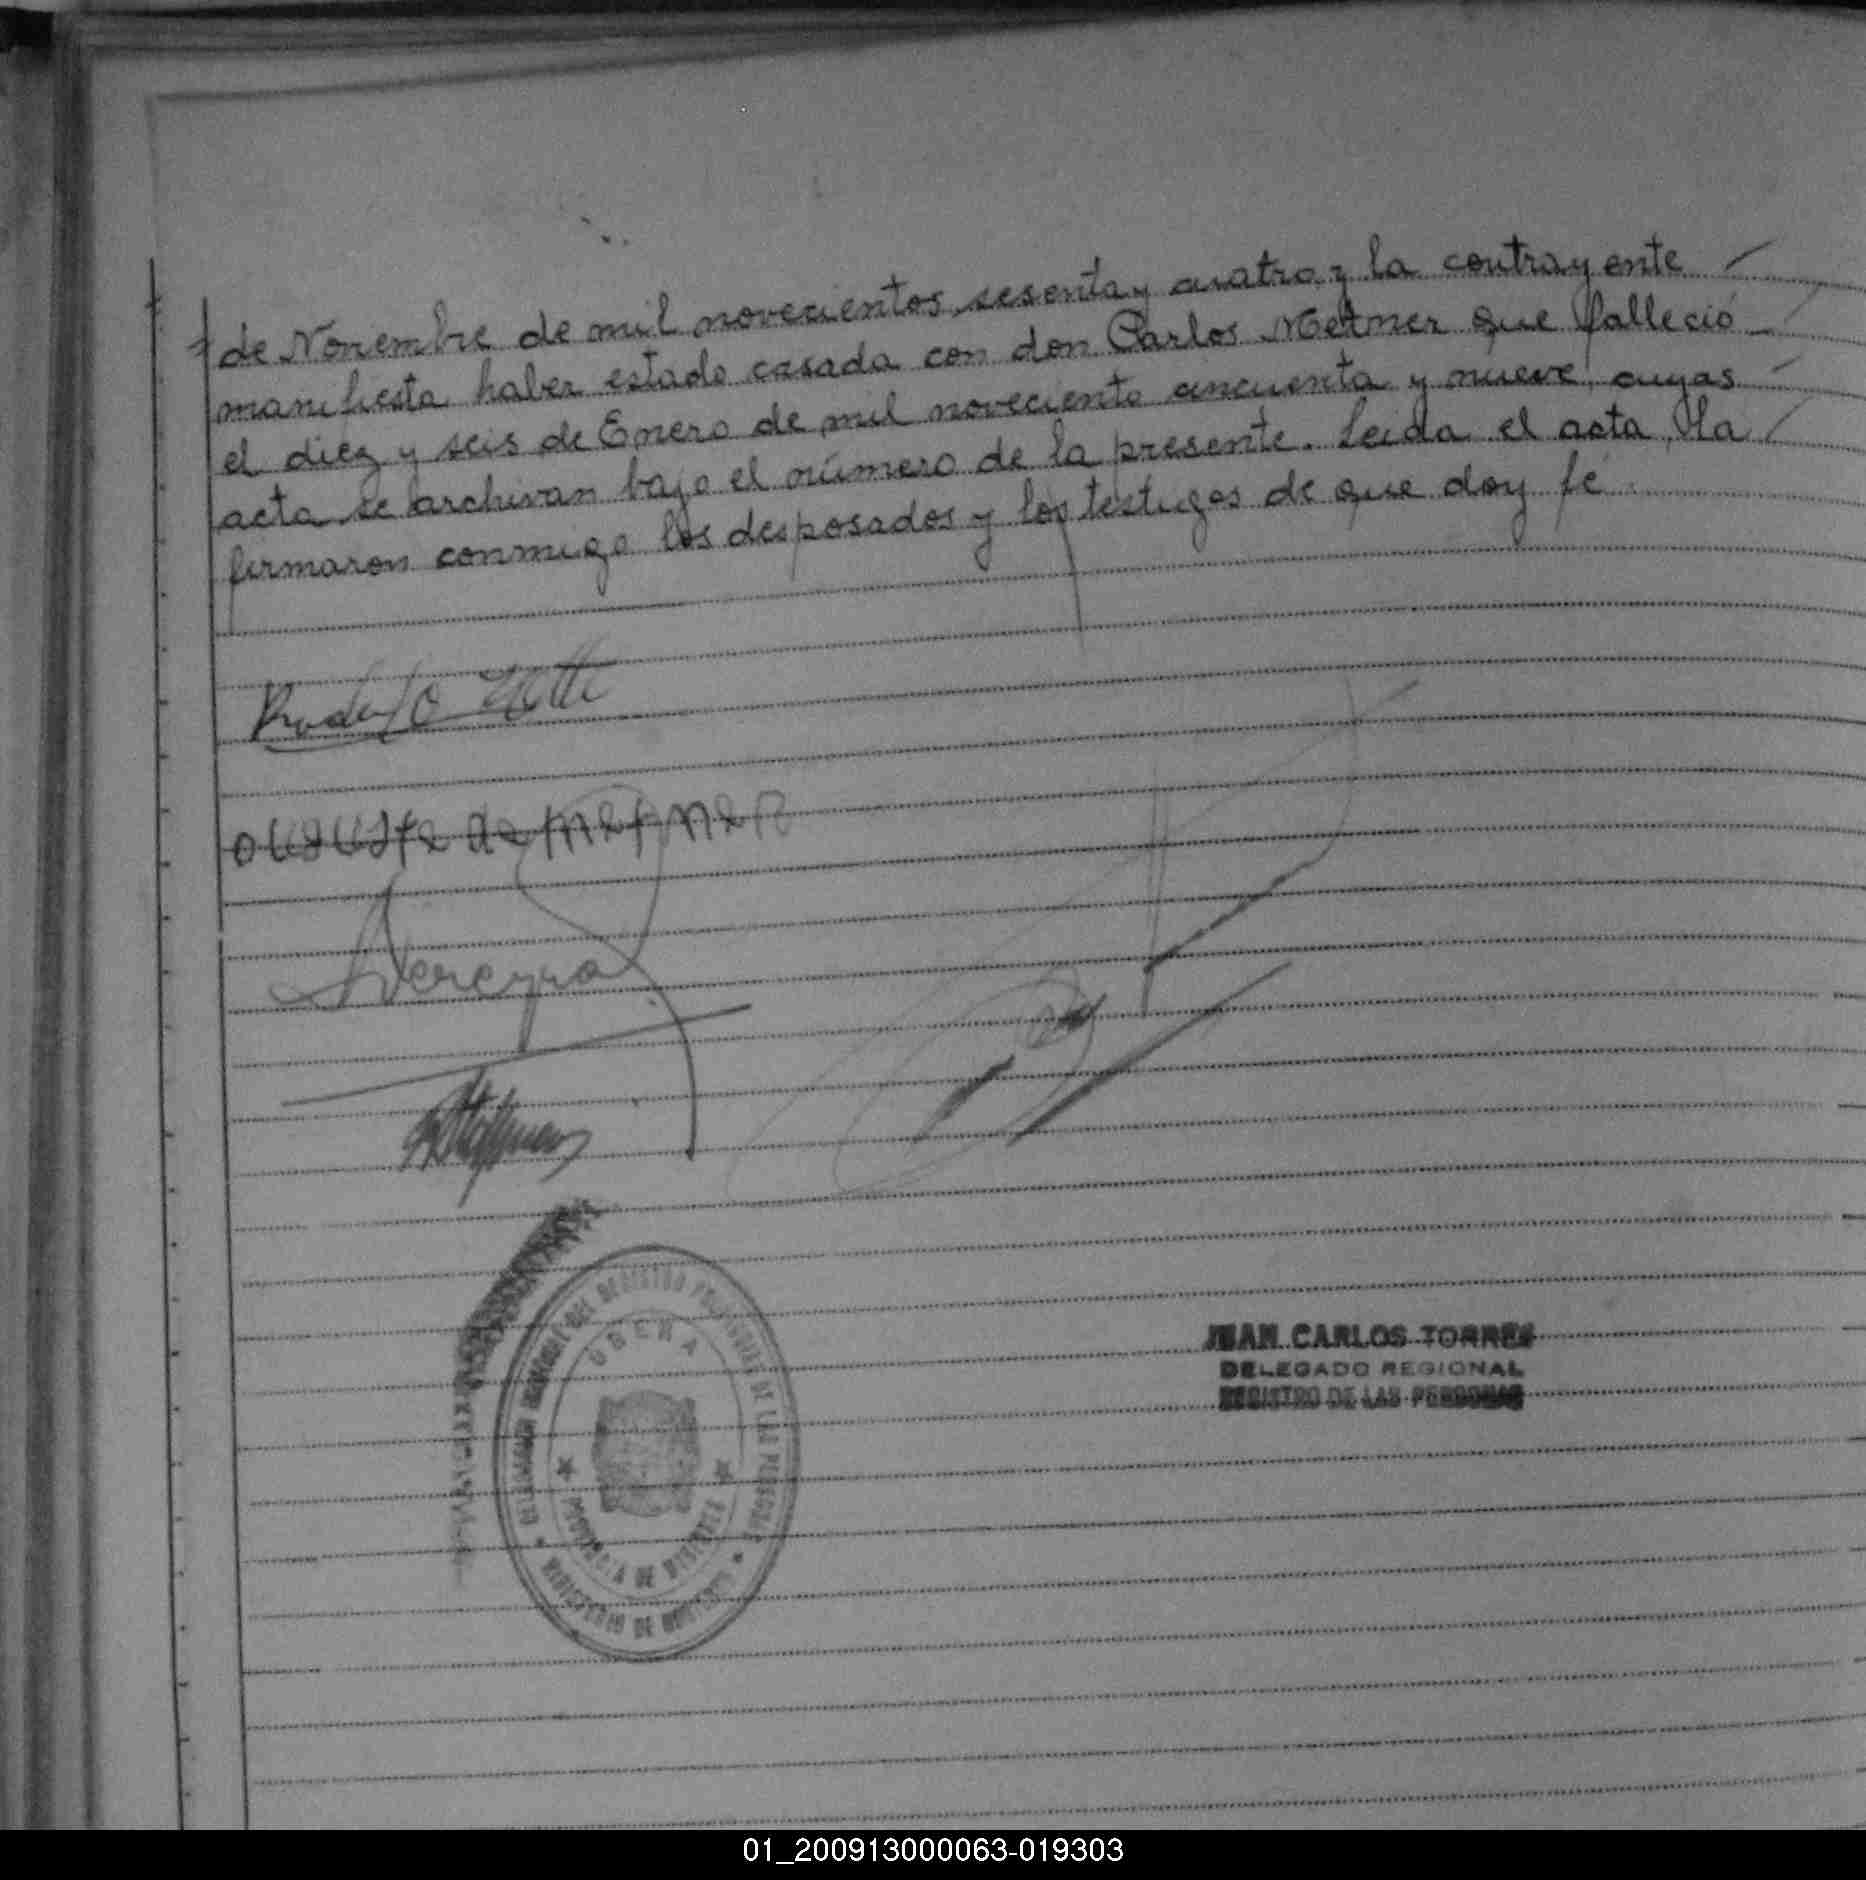 de Noviembre de mil novecientos sesenta y cuatro y la contrayente
manifiesta haber estado casada con don Carlos Metner que falleció
el diez y seis de Enero de mil noveciento cincuenta y nueve, cuyas
acta se archivan bajo el número de la presente. Leida el acta, la
firmaron conmigo los desposados y los testigos de que doy fé
Rodolfo
auguste de metner
Pereyra
DEL REGISTRO PROVINCIAL DE LAS PERSONAS
OBERA
PROVINCIA DE MISIONES
MINISTERIO DE GOBIERNO
JUAN CARLOS TORRES
DELEGADO REGIONAL
REGISTRO DE LAS PERSONAS
01_200913000063-019303